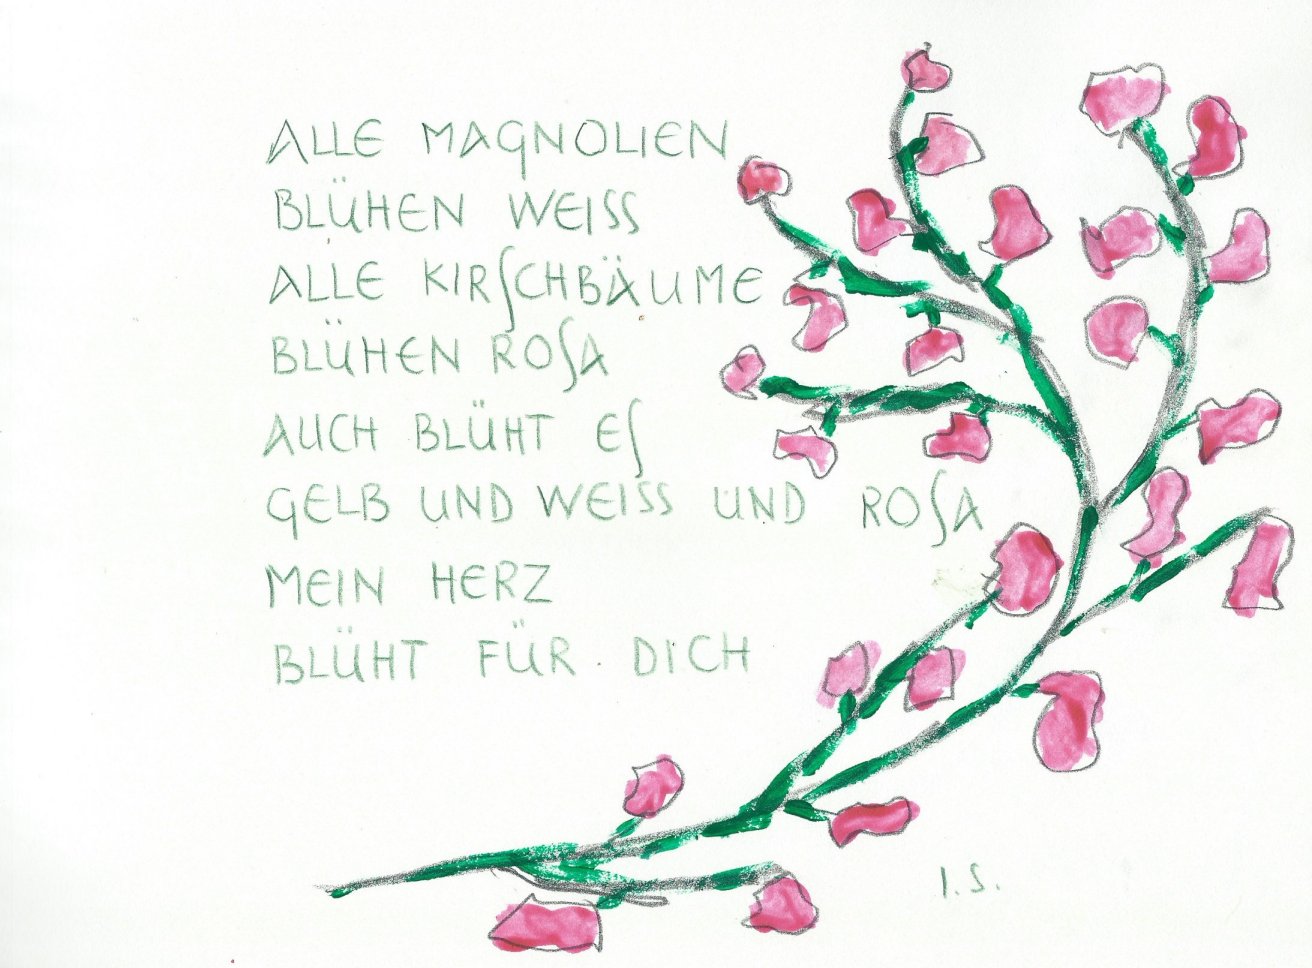 ALLE MAGNOLIEN
BLÜHEN WEISS
ALLE KIRSCHBÄUME
BLÜHEN ROSA
AUCH BLÜHT ES
GELB UND WEISS UND ROSA
MEIN HERZ
BLÜHT FÜR DICH
I.S.